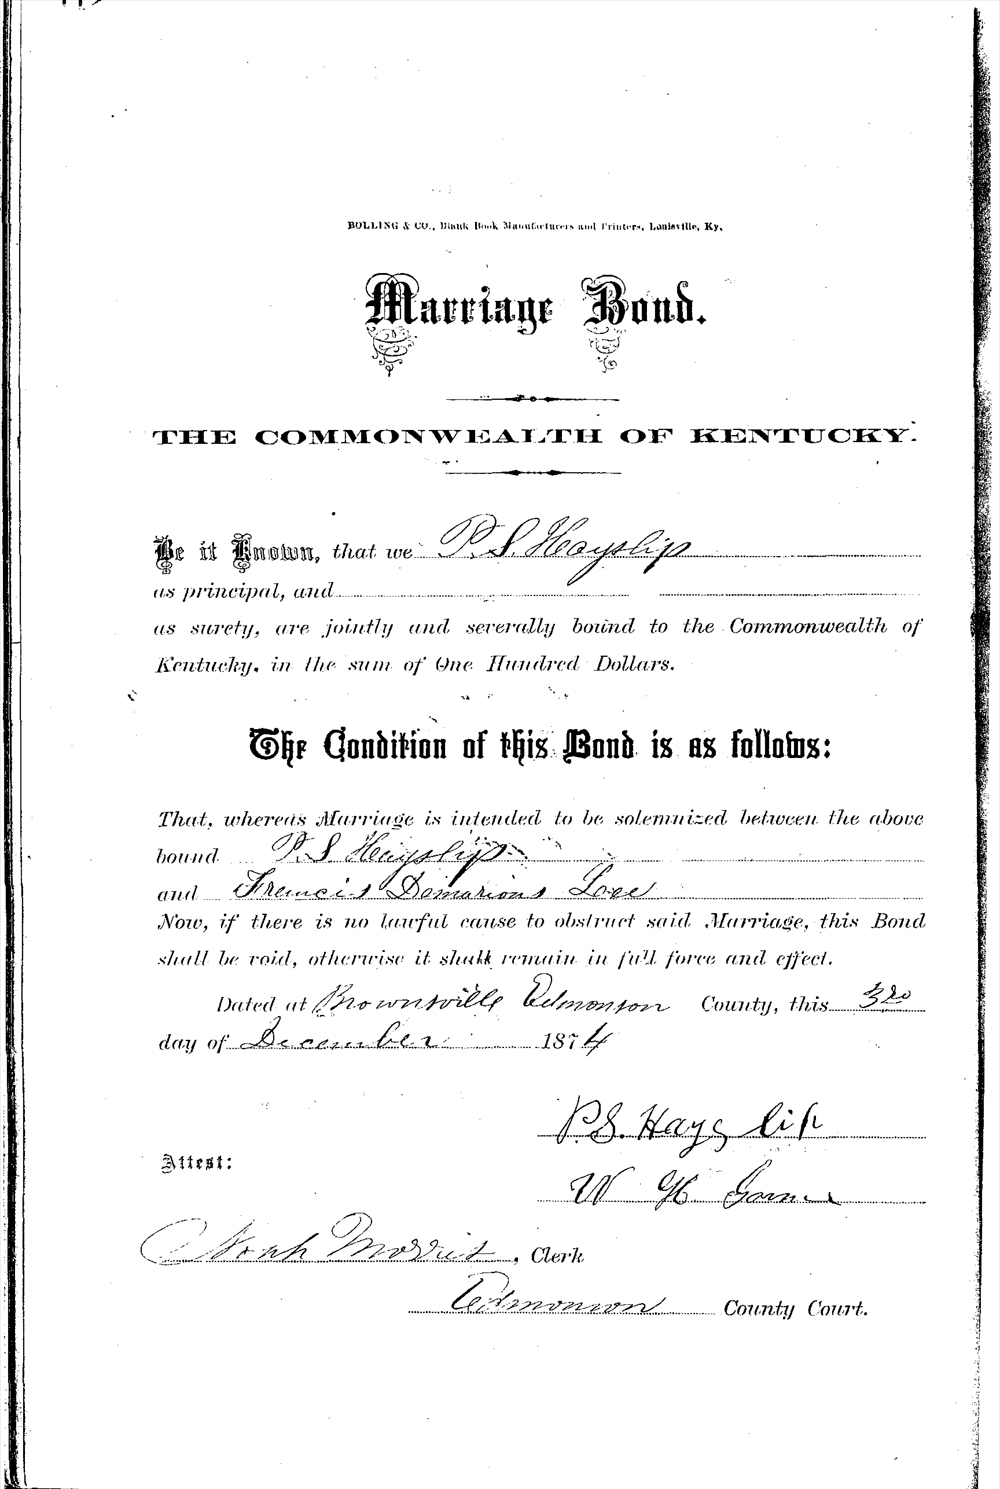 BOLLING & CO., Blank Book Manufacturers and Printers, Louisville, Ky.
Marriage Bond.
THE COMMONWEALTH OF KENTUCKY.
Be it Known, that we P. S. Hayslip
as principal, and
as surety, are jointly and severally bound to the Commonwealth of
Kentucky, in the sum of One Hundred Dollars.
The Condition of this Bond is as follows:
That, whereas Marriage is intended to be solemnized between the above
bound P. S Hayslip
and Francis Demarious
Now, if there is no lawful cause to obstruct said Marriage, this Bond
shall be void, otherwise it shall remain in full force and effect.
Dated at Brownsville Edmonson County, this 3rd
day of December 1874
P. S. Hayslip
Attest:
W H
Noah Morris, Clerk
Edmonson County Court.